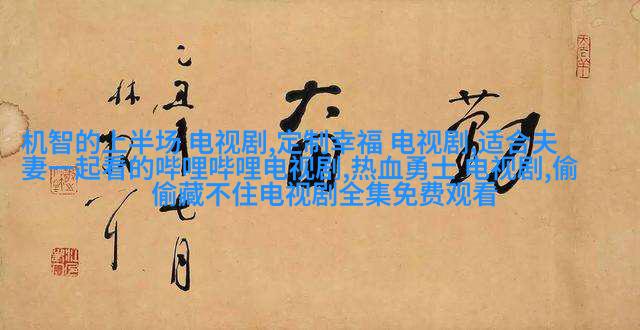 机智的上半场 电视剧,定制幸福 电视剧,适合夫
妻一起看的哔哩哔哩电视剧,热血勇士 电视剧,偷
偷藏不住电视剧全集免费观看
勤奋
乙丑年七月
林散耳